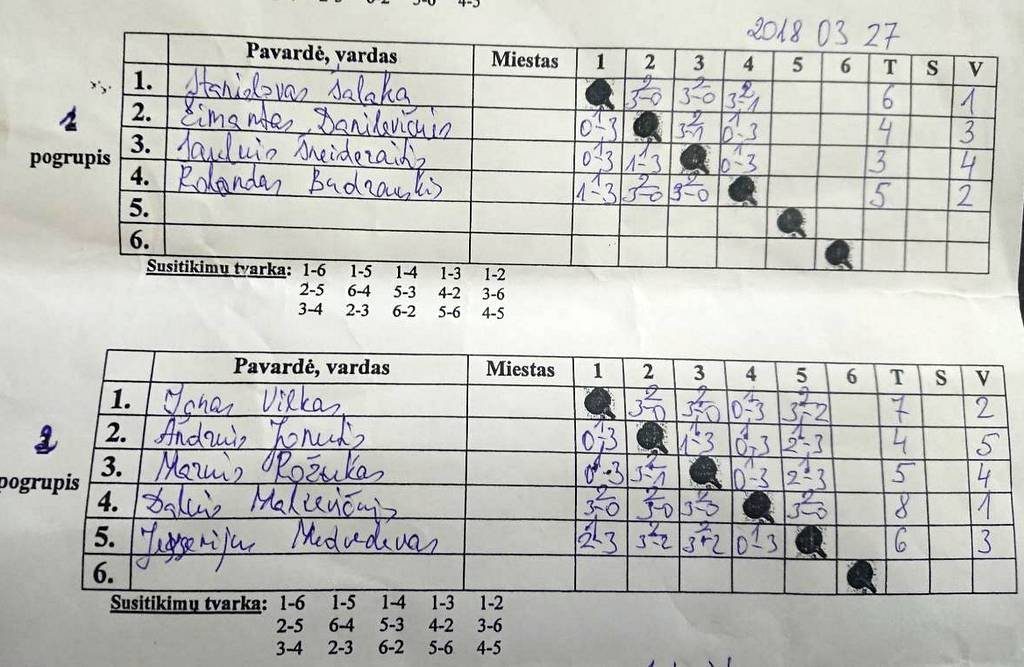 2018 03 27
Pavardė, vardas Miestas 1 2 3 4 5 6 T S V
1 pogrupis
1. Stanislovas Šalaka 2 3-0 2 3-0 2 3-1 6 1
2. Eimantas Danilevičius 1 0-3 2 3-1 1 0-3 4 3
3. Saulius Šneideraitis 1 0-3 1 1-3 1 0-3 3 4
4. Rolandas Budrauskis 1 1-3 2 3-0 2 3-0 5 2
5.
6.
Susitikimų tvarka: 1-6 1-5 1-4 1-3 1-2
2-5 6-4 5-3 4-2 3-6
3-4 2-3 6-2 5-6 4-5
Pavardė, vardas Miestas 1 2 3 4 5 6 T S V
2 pogrupis
1. Jonas Vilkas 2 3-0 2 3-0 1 0-3 2 3-2 7 2
2. Andrius 1 0-3 1 1-3 1 0-3 1 2-3 4 5
3. Marius Rožukas 1 0-3 2 3-1 1 0-3 1 2-3 5 4
4. Dalius Malcevičius 2 3-0 2 3-0 2 3-0 2 3-0 8 1
5. Medvedevas 1 2-3 2 3-2 2 3-2 1 0-3 6 3
6.
Susitikimų tvarka: 1-6 1-5 1-4 1-3 1-2
2-5 6-4 5-3 4-2 3-6
3-4 2-3 6-2 5-6 4-5